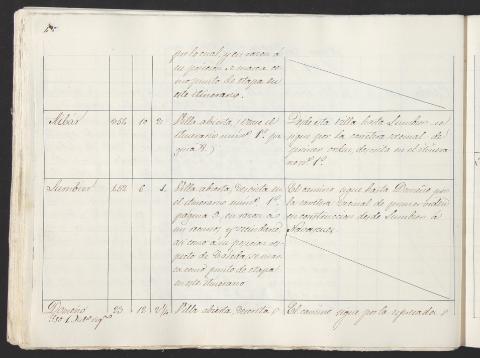 por lo cual, y en razon á
su posicion se marca co
mo punto de etapa en
este itinerario.
Aibar 252 10 2
Villa abierta, (véase el
itinerario núm.º 1.º pá
gina
Desde esta villa hasta Lumbier se
sigue por la carretera
de
primer orden, descrita en el itinera
rio n.º 1.º
Lumbier 6 1
Villa abierta, descrita en
el itinerario núm.º 1.º
página 9, en razon á
sus recursos, y vecindario
asi como á su posicion res
pecto de se mar
ca como punto de etapa
en este itinerario
El camino sigue hasta Domeño por
la carretera de primer orden
en construccion desde Lumbier á
Navascués
Domeño 23 12 2 1/2
Villa abierta, descrita
El camino sigue por la expresada